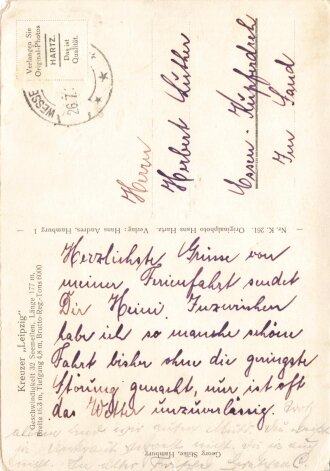 Verlangen Sie
Original-Photos
HARTZ.
Das ist
Qualität.
26.7.
Herrn
Herbert Luther
Essen - Kupferdreh
Im Sand
Nr. K. 261. Originalphoto Hans Hartz. Verlag: Hans Andres, Hamburg 1
Kreuzer „Leipzig"
Geschwindigkeit 32 Seemeilen, Länge 177 m,
Breite 16,3 m, Tiefgang 4,8 m, Brutto-Reg.-Tons 6000
Herzlichste Grüsse von
meiner Ferienfahrt sendet
Dir Heini. Inzwischen
habe ich so manche schöne
Fahrt bisher ohne die geringste
Störung gemacht, nur ist oft
das Wetter unzuverlässig.
Georg Stilke, Hamburg